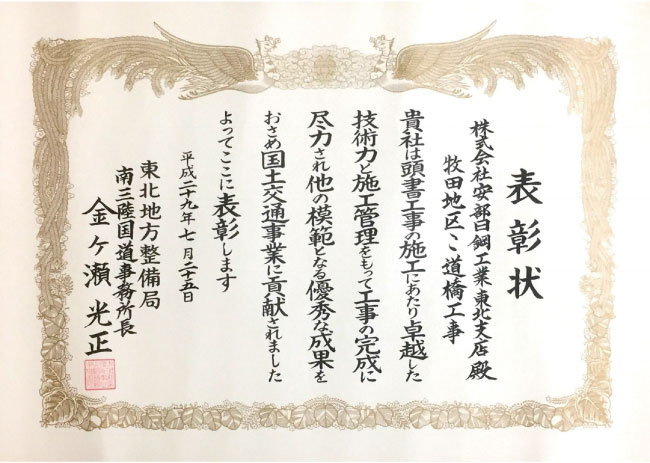 表彰状
株式会社安部日鋼工業東北支店殿
牧田地区こ道橋工事
貴社は頭書工事の施工にあたり卓越した
技術力と施工管理をもって工事の完成に
尽力され他の模範となる優秀な成果を
おさめ国土交通事業に貢献されました
よってここに表彰します
平成二十九年七月二十五日
東北地方整備局
南三陸国道事務所長
金ヶ瀬光正